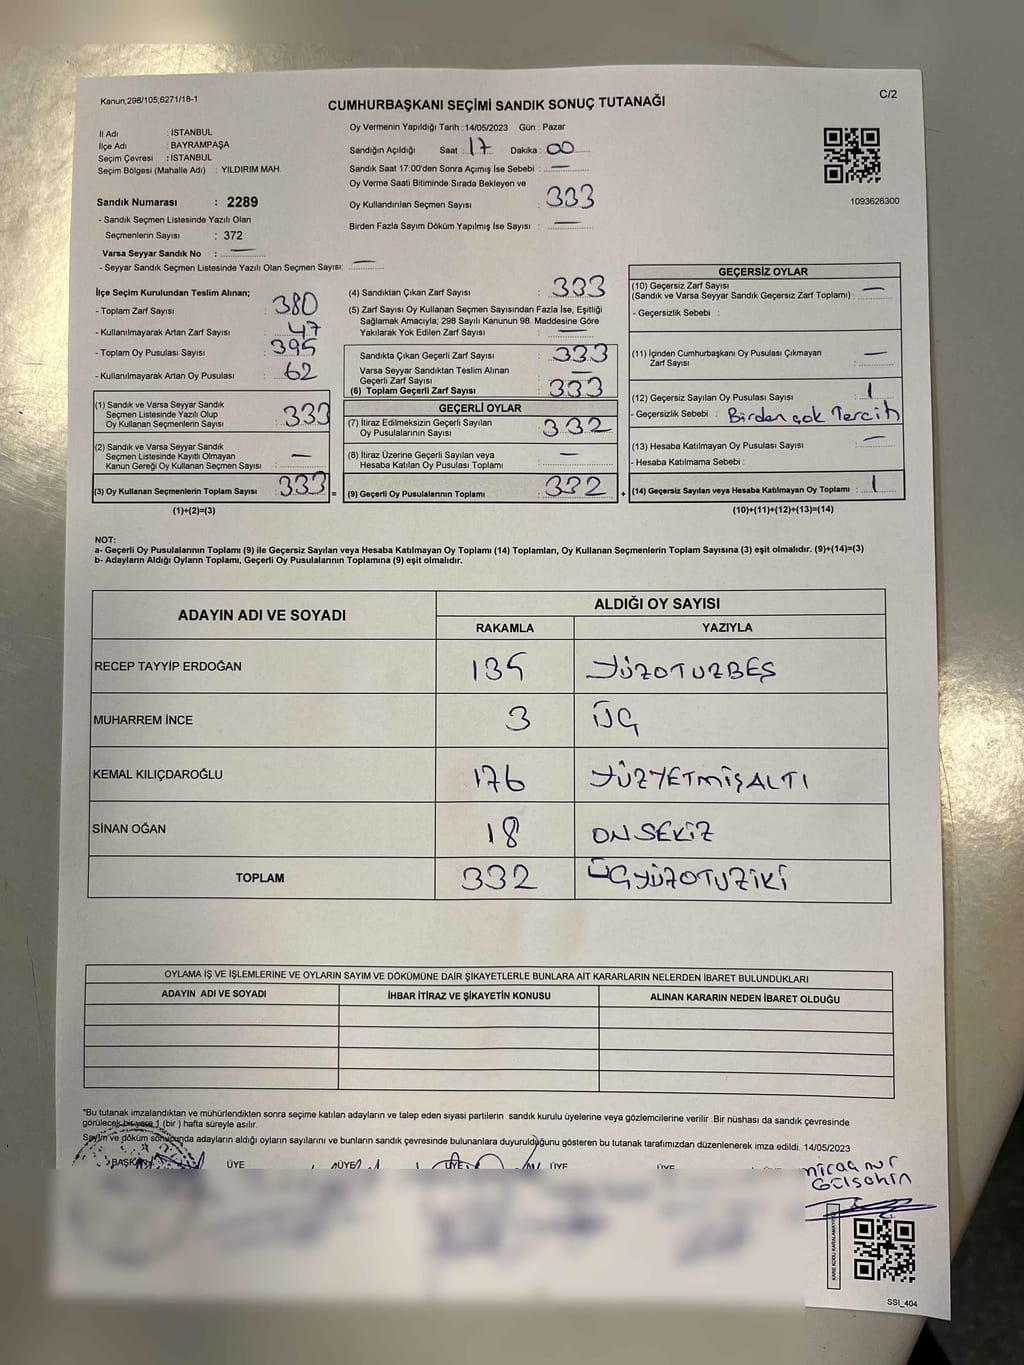 Kanun;298/105;6271/18-1
C/2
CUMHURBAŞKANI SEÇİMİ SANDIK SONUÇ TUTANAĞI
İl Adı : İSTANBUL
İlçe Adı : BAYRAMPAŞA
Seçim Çevresi : İSTANBUL
Seçim Bölgesi (Mahalle Adı) : YILDIRIM MAH.
Sandık Numarası : 2289
- Sandık Seçmen Listesinde Yazılı Olan
Seçmenlerin Sayısı : 372
Varsa Seyyar Sandık No : —
- Seyyar Sandık Seçmen Listesinde Yazılı Olan Seçmen Sayısı: —
Oy Vermenin Yapıldığı Tarih : 14/05/2023 Gün : Pazar
Sandığın Açıldığı Saat : 17 Dakika : 00
Sandık Saat 17:00'den Sonra Açımış İse Sebebi : —
Oy Verme Saati Bitiminde Sırada Bekleyen ve
Oy Kullandırılan Seçmen Sayısı : 333
Birden Fazla Sayım Döküm Yapılmış İse Sayısı : —
1093626300
İlçe Seçim Kurulundan Teslim Alınan;
- Toplam Zarf Sayısı : 380
- Kullanılmayarak Artan Zarf Sayısı : 47
- Toplam Oy Pusulası Sayısı : 395
- Kullanılmayarak Artan Oy Pusulası : 62
(1) Sandık ve Varsa Seyyar Sandık
Seçmen Listesinde Yazılı Olup
Oy Kullanan Seçmenlerin Sayısı : 333
(2) Sandık ve Varsa Seyyar Sandık
Seçmen Listesinde Kayıtlı Olmayan
Kanun Gereği Oy Kullanan Seçmen Sayısı : —
(3) Oy Kullanan Seçmenlerin Toplam Sayısı : 333 =
(1)+(2)=(3)
(4) Sandıktan Çıkan Zarf Sayısı : 333
(5) Zarf Sayısı Oy Kullanan Seçmen Sayısından Fazla İse, Eşitliği
Sağlamak Amacıyla; 298 Sayılı Kanunun 98. Maddesine Göre
Yakılarak Yok Edilen Zarf Sayısı : —
Sandıkta Çıkan Geçerli Zarf Sayısı : 333
Varsa Seyyar Sandıktan Teslim Alınan
Geçerli Zarf Sayısı : —
(6) Toplam Geçerli Zarf Sayısı : 333
GEÇERLİ OYLAR
(7) İtiraz Edilmeksizin Geçerli Sayılan
Oy Pusulalarının Sayısı : 332
(8) İtiraz Üzerine Geçerli Sayılan veya
Hesaba Katılan Oy Pusulası Toplamı : —
(9) Geçerli Oy Pusulalarının Toplamı : 332 +
GEÇERSİZ OYLAR
(10) Geçersiz Zarf Sayısı
(Sandık ve Varsa Seyyar Sandık Geçersiz Zarf Toplamı) : —
- Geçersizlik Sebebi :
(11) İçinden Cumhurbaşkanı Oy Pusulası Çıkmayan
Zarf Sayısı : —
(12) Geçersiz Sayılan Oy Pusulası Sayısı : 1
- Geçersizlik Sebebi : Birden çok Tercih
(13) Hesaba Katılmayan Oy Pusulası Sayısı : —
- Hesaba Katılmama Sebebi :
(14) Geçersiz Sayılan veya Hesaba Katılmayan Oy Toplamı : 1
(10)+(11)+(12)+(13)=(14)
NOT:
a- Geçerli Oy Pusulalarının Toplamı (9) ile Geçersiz Sayılan veya Hesaba Katılmayan Oy Toplamı (14) Toplamları, Oy Kullanan Seçmenlerin Toplam Sayısına (3) eşit olmalıdır. (9)+(14)=(3)
b- Adayların Aldığı Oyların Toplamı, Geçerli Oy Pusulalarının Toplamına (9) eşit olmalıdır.
ADAYIN ADI VE SOYADI
ALDIĞI OY SAYISI
RAKAMLA YAZIYLA
RECEP TAYYİP ERDOĞAN 135 YÜZOTUZBEŞ
MUHARREM İNCE 3 ÜÇ
KEMAL KILIÇDAROĞLU 176 YÜZYETMİŞALTI
SİNAN OĞAN 18 ONSEKİZ
TOPLAM 332 ÜÇYÜZOTUZİKİ
OYLAMA İŞ VE İŞLEMLERİNE VE OYLARIN SAYIM VE DÖKÜMÜNE DAİR ŞİKAYETLERLE BUNLARA AİT KARARLARIN NELERDEN İBARET BULUNDUKLARI
ADAYIN ADI VE SOYADI İHBAR İTİRAZ VE ŞİKAYETİN KONUSU ALINAN KARARIN NEDEN İBARET OLDUĞU
*Bu tutanak imzalandıktan ve mühürlendikten sonra seçime katılan adayların ve talep eden siyasi partilerin sandık kurulu üyelerine veya gözlemcilerine verilir .Bir nüshası da sandık çevresinde
görülecek bir yere 1 (bir ) hafta süreyle asılır.
Sayım ve döküm sonucunda adayların aldığı oyların sayılarını ve bunların sandık çevresinde bulunanlara duyurulduğunu gösteren bu tutanak tarafımızdan düzenlenerek imza edildi. 14/05/2023
BAŞKAN ÜYE ÜYE ÜYE ÜYE ÜYE
SSI_404